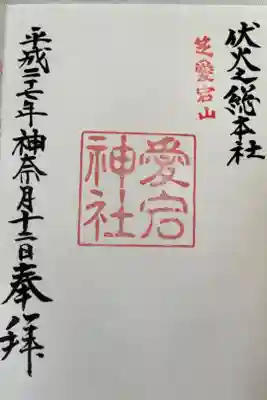 伏火之総本社
芝愛宕山
愛宕神社
平成二十七年神奈月十二日奉拝